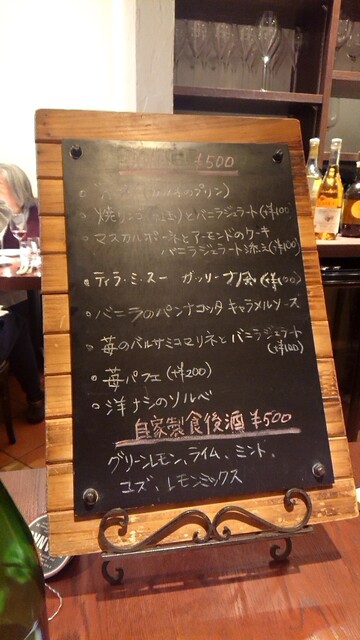 ¥500
のプリン)
焼リンゴ とバニラジェラート(+¥100
マスカルポーネとアーモンドのケーキ
バニラジェラート添え(+¥100)
ティラ・ミ・スー ガッリーナ風(+¥100)
バニラのパンナコッタ キャラメルソース
苺のバルサミコマリネとバニラジェラート
(+¥100)
苺パフェ (+¥200)
洋ナシのソルベ
自家製食後酒 ¥500
グリーンレモン、ライム、ミント、
ユズ、レモンミックス